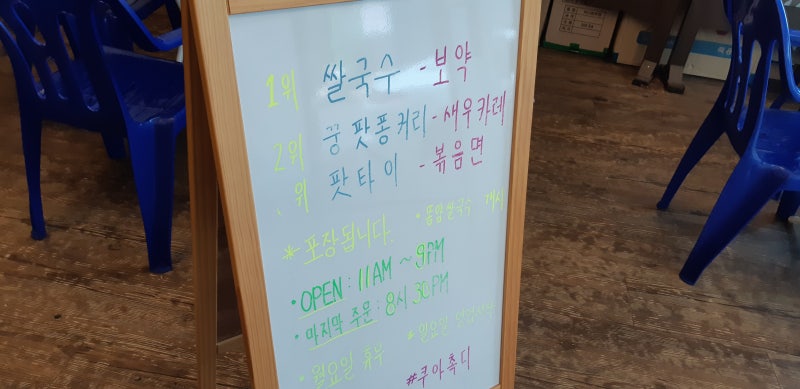 1위 쌀국수 - 보약
2위 꿍 팟퐁커리 - 새우카레
위 팟타이 - 볶음면
* 포장됩니다. • 똠얌쌀국수 개시
• OPEN : 11AM ~ 9PM
• 마지막 주문 : 8시 30PM
• 월요일 휴무 * 일요일
#쿠아촉디